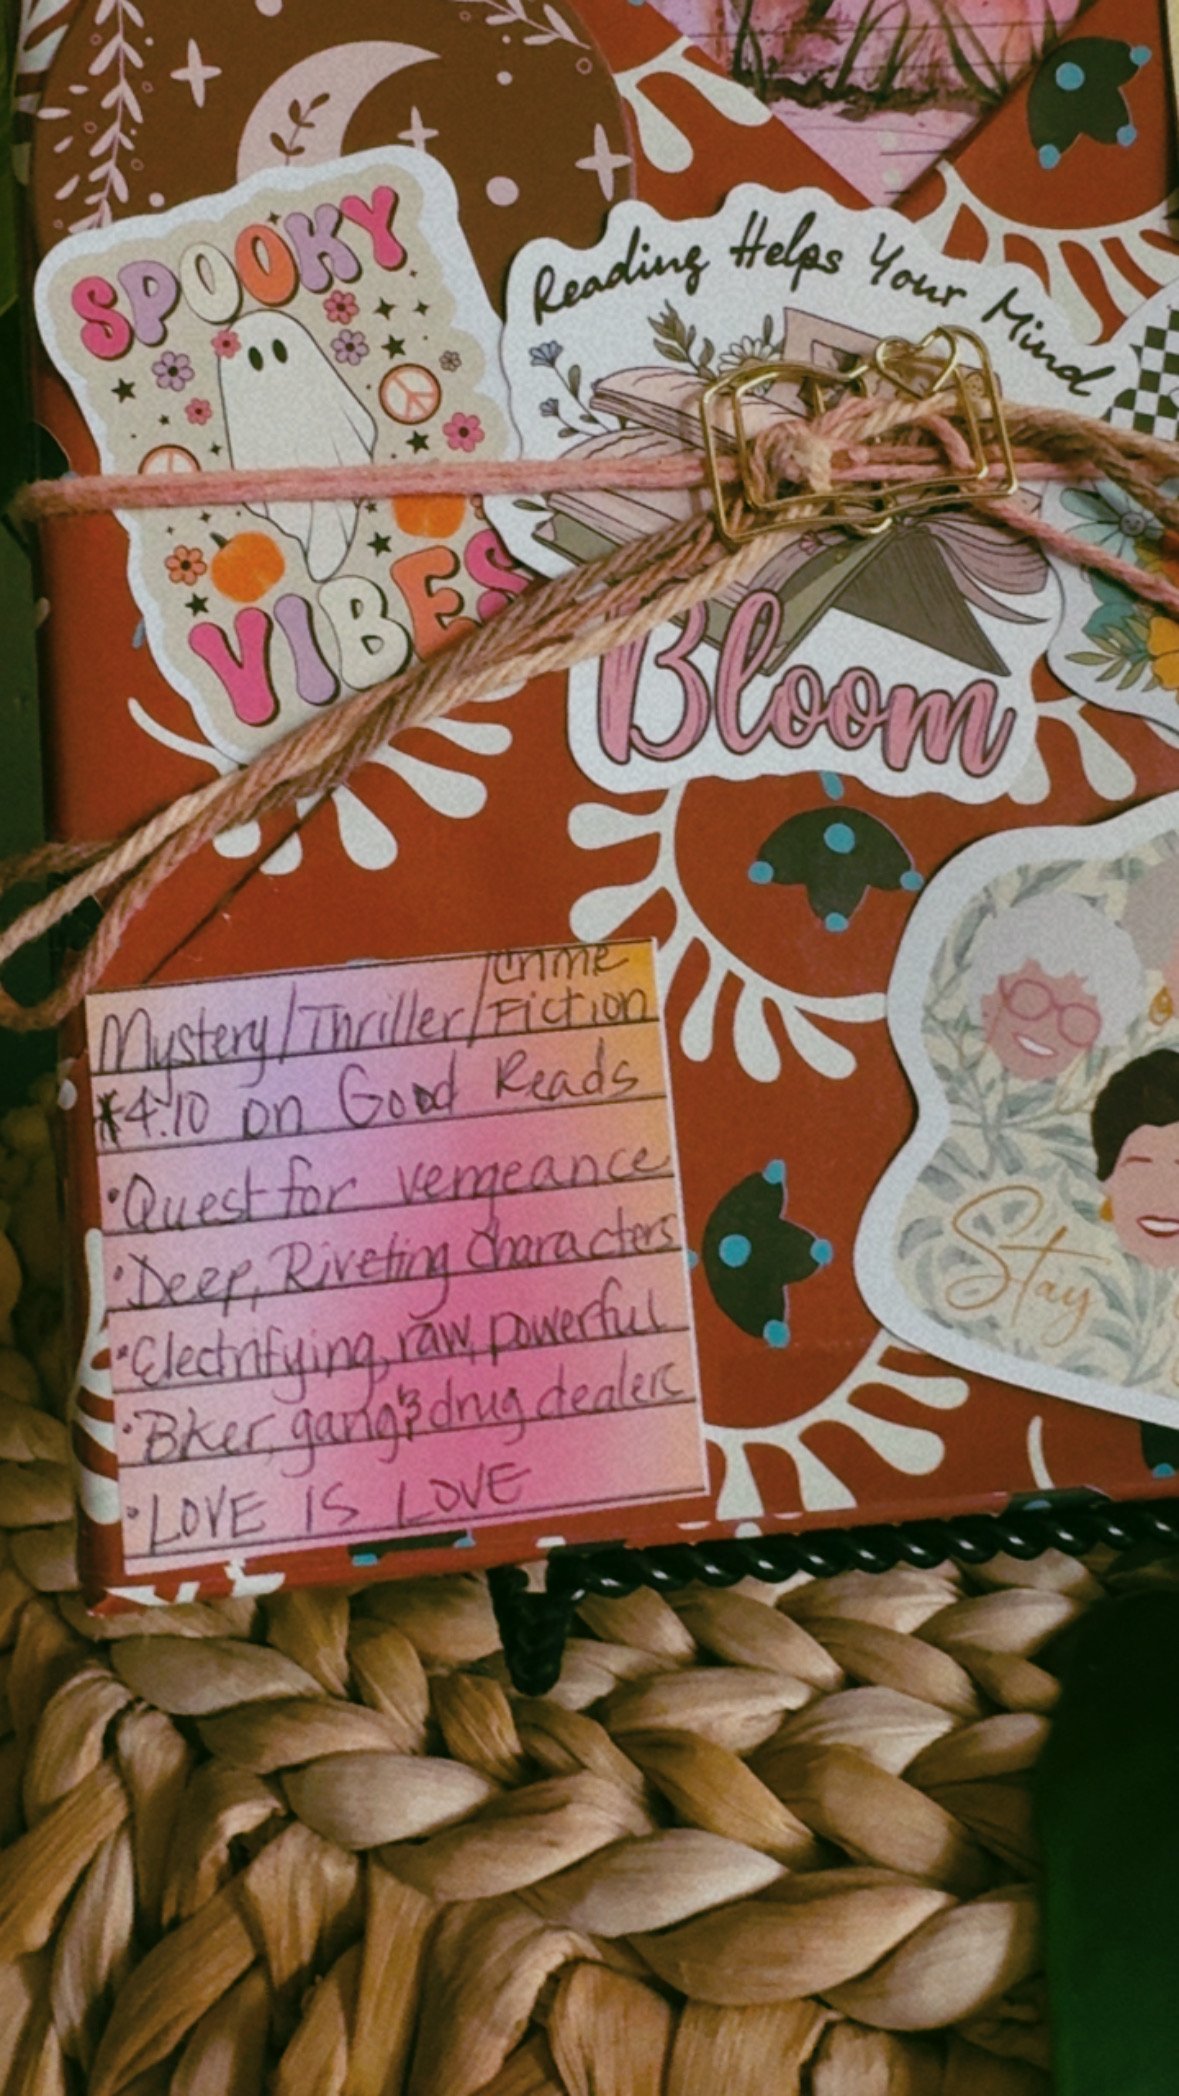 SPOOKY
VIBES
Reading Helps Your Mind
Bloom
Stay
Mystery/Thriller/Crime Fiction
*4.10 on Good Reads
•Quest for vengeance
•Deep, Riveting Characters
•Electrifying, raw, powerful
•Biker, gang & drug dealers
•LOVE IS LOVE